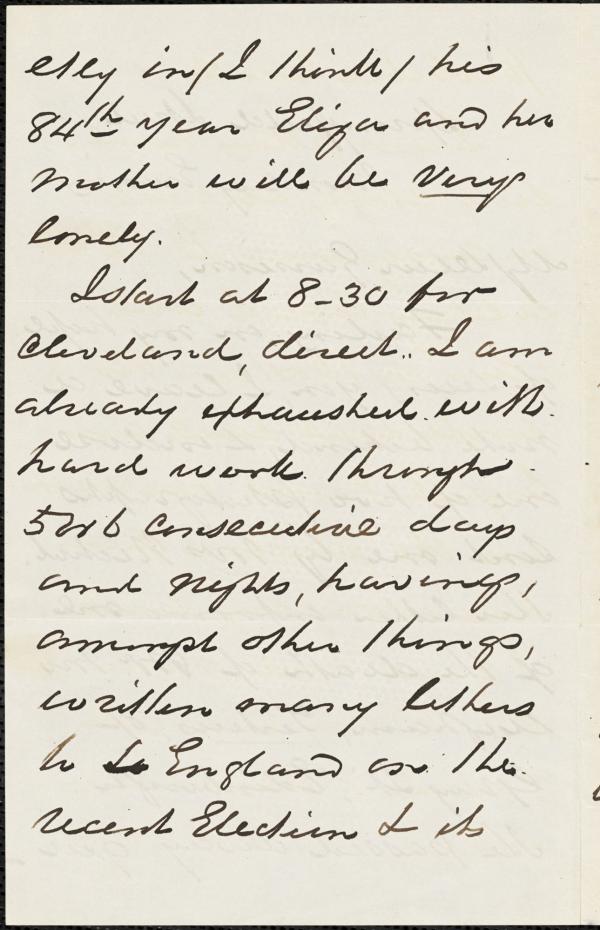 etly in (I think) his
84th year Eliza and her
mother will be very
lonely.
I start at 8-30 for
Cleveland, direct. I am
already exhausted with
hard work through
5 or 6 consecutive days
and nights, having,
amongst other things,
written many letters
to to England on the
recent Election & its